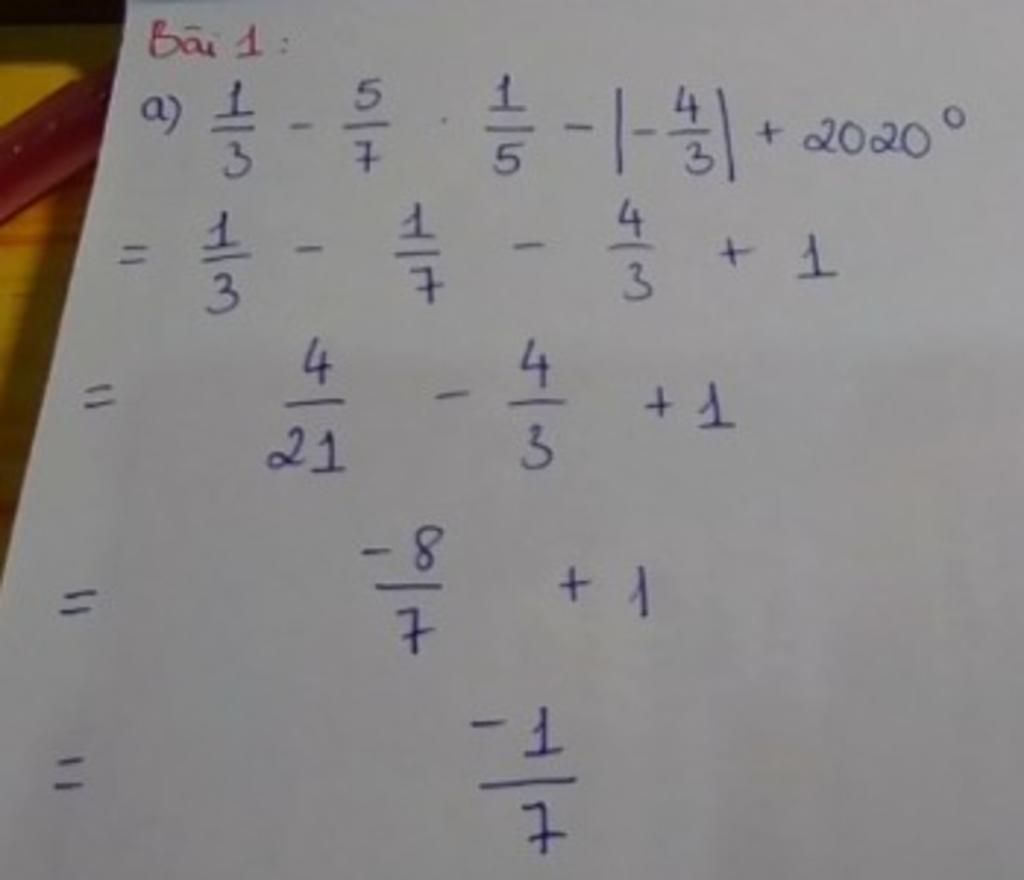 Bài 1:
a) 1/3 - 5/7 · 1/5 - |-4/3| + 2020⁰
= 1/3 - 1/7 - 4/3 + 1
= 4/21 - 4/3 + 1
= -8/7 + 1
= -1/7